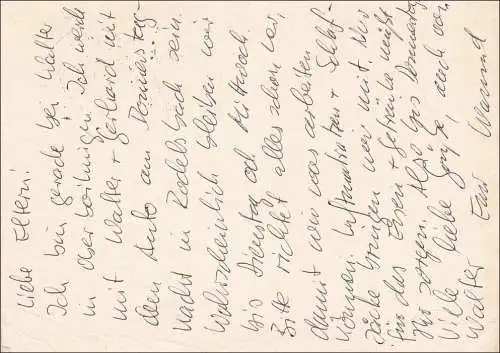 Liebe Eltern!
Ich bin gerade bei Walter
in Oberboihingen. Ich werde
mit Walter + Gerhard mit
dem Auto am Donnerstag-
Nacht in Radelsbach sein.
Wahrscheinlich bleiben wir
bis Dienstag od. Mittwoch.
Bitte richtet alles schon her,
damit wir was arbeiten
können. Luftmatratzen + Schlaf-
säcke bringen wir mit. Nur
für das Essen + Getränke müßt
Ihr sorgen. Also bis Donnerstag
Viele liebe Grüße, auch von
Walter Euer